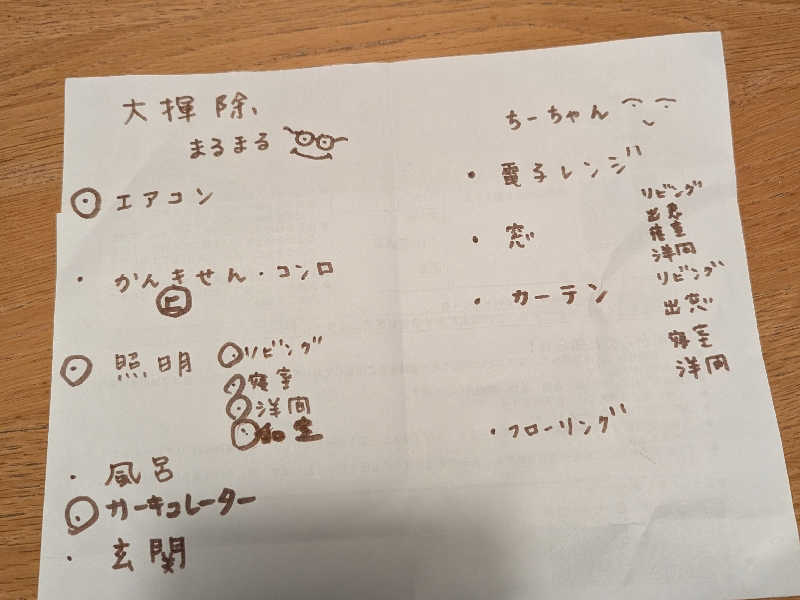 大掃除
まるまる
エアコン
・かんきせん・コンロ
照明 リビング
寝室
洋間
和室
・風呂
サーキュレーター
・玄関
ちーちゃん
・電子レンジ
・窓 リビング
出窓
寝室
洋間
・カーテン リビング
出窓
寝室
洋間
・フローリング